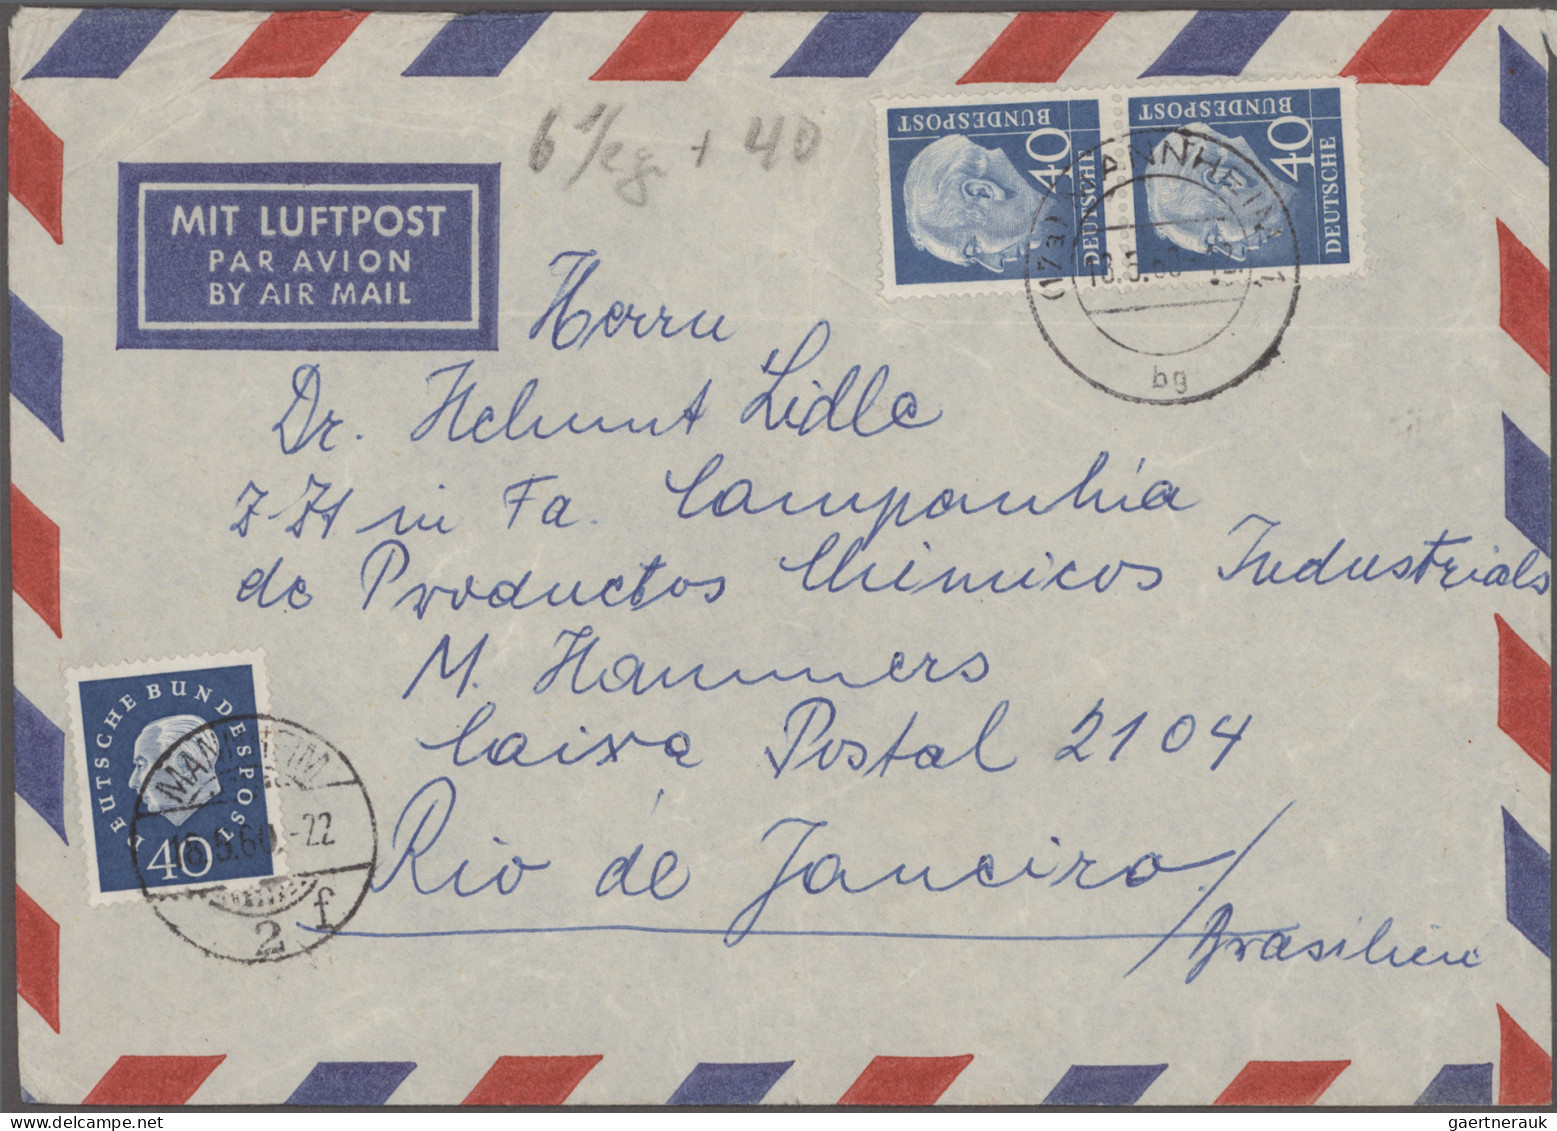 6 1/2g + 40
BUNDESPOST
40
DEUTSCHE
BUNDESPOST
40
DEUTSCHE
(17a) MANNHEIM 1
18.5.60
bg
MIT LUFTPOST
PAR AVION
BY AIR MAIL
Herru
Dr. Helmut Lidle
z Zt in Fa. Companhia
de Productos Chimicos Industrials
M. Hammers
Caixa Postal 2104
Rio de Janeiro/
Brasilien
DEUTSCHE BUNDESPOST
40
MANNHEIM
18.5.60.-22
2 f
gaertnerauk